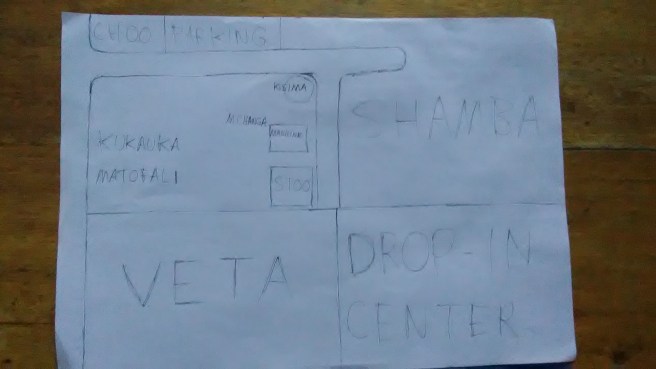 CHOO PARKING
KISIMA
SHAMBA
MCHANGA
MASHINE
KUKAUKA
MATOFALI
STOO
VETA
DROP-IN
CENTER